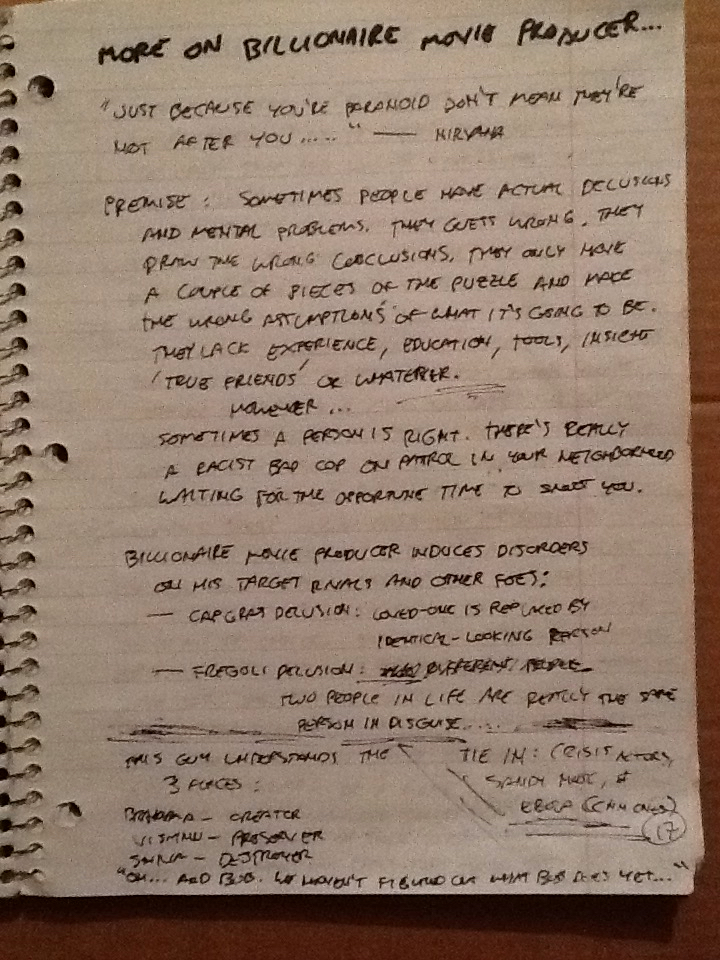 MORE ON BILLIONAIRE MOVIE PRODUCER...
"JUST BECAUSE YOU'RE PARANOID DON'T MEAN THEY'RE
NOT AFTER YOU....." — NIRVANA
PREMISE: SOMETIMES PEOPLE HAVE ACTUAL DELUSIONS
AND MENTAL PROBLEMS. THEY GUESS WRONG. THEY
DRAW THE WRONG CONCLUSIONS. THEY ONLY HAVE
A COUPLE OF PIECES OF THE PUZZLE AND MAKE
THE WRONG ASSUMPTIONS OF WHAT IT'S GOING TO BE.
THEY LACK EXPERIENCE, EDUCATION, TOOLS, INSIGHT
'TRUE FRIENDS' OR WHATEVER.
HOWEVER...
SOMETIMES A PERSON IS RIGHT. THERE'S REALLY
A RACIST BAD COP ON PATROL IN YOUR NEIGHBORHOOD
WAITING FOR THE OPPORTUNE TIME TO SHOOT YOU.
BILLIONAIRE MOVIE PRODUCER INDUCES DISORDERS
ON HIS TARGET RIVALS AND OTHER FOES:
— CAPGRAS DELUSION: LOVED-ONE IS REPLACED BY
IDENTICAL-LOOKING PERSON
— FREGOLI DELUSION: DIFFERENT PEOPLE
TWO PEOPLE IN LIFE ARE REALLY THE SAME
PERSON IN DISGUISE....
THIS GUY UNDERSTANDS THE
3 FORCES:
BRAHMA – CREATOR
VISHNU – PRESERVER
SHIVA – DESTROYER
TIE IN: CRISIS ACTORS,
SANDY HOOK, &
EBOLA (CNN ONLY)
17
"OH... AND BOB. WE HAVEN'T FIGURED OUT WHAT BOB DOES YET..."